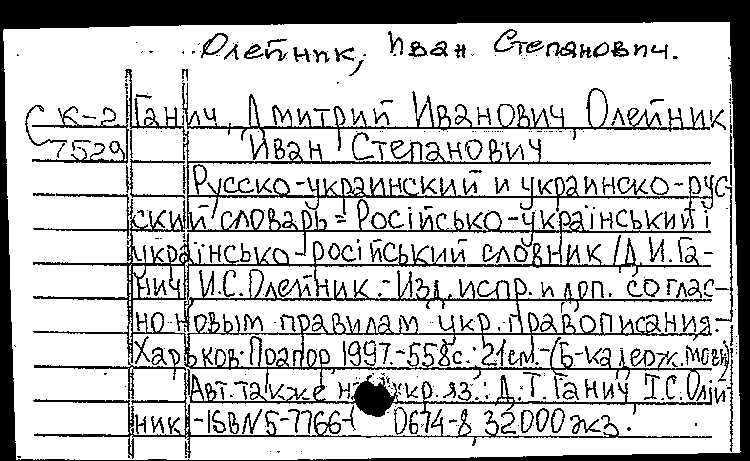 Олейник, Иван Степанович.
СК-2 Ганич, Дмитрий Иванович, Олейник
7529 Иван Степанович
Русско-украинский и украинско-рус-
ский словарь = Російсько-український і
українсько-російський словник / Д.И.Га-
нич, И.С.Олейник.-Изд. испр. и доп. соглас-
но новым правилам укр. правописания.-
Харьков: Прапор, 1997.-558с.; 21см.-(Б-ка держ. мови)
Авт. также на укр. яз.: Д.І.Ганич, І.С.Олій-
ник.-ISBN 5-7766-0674-8, 32000 экз.